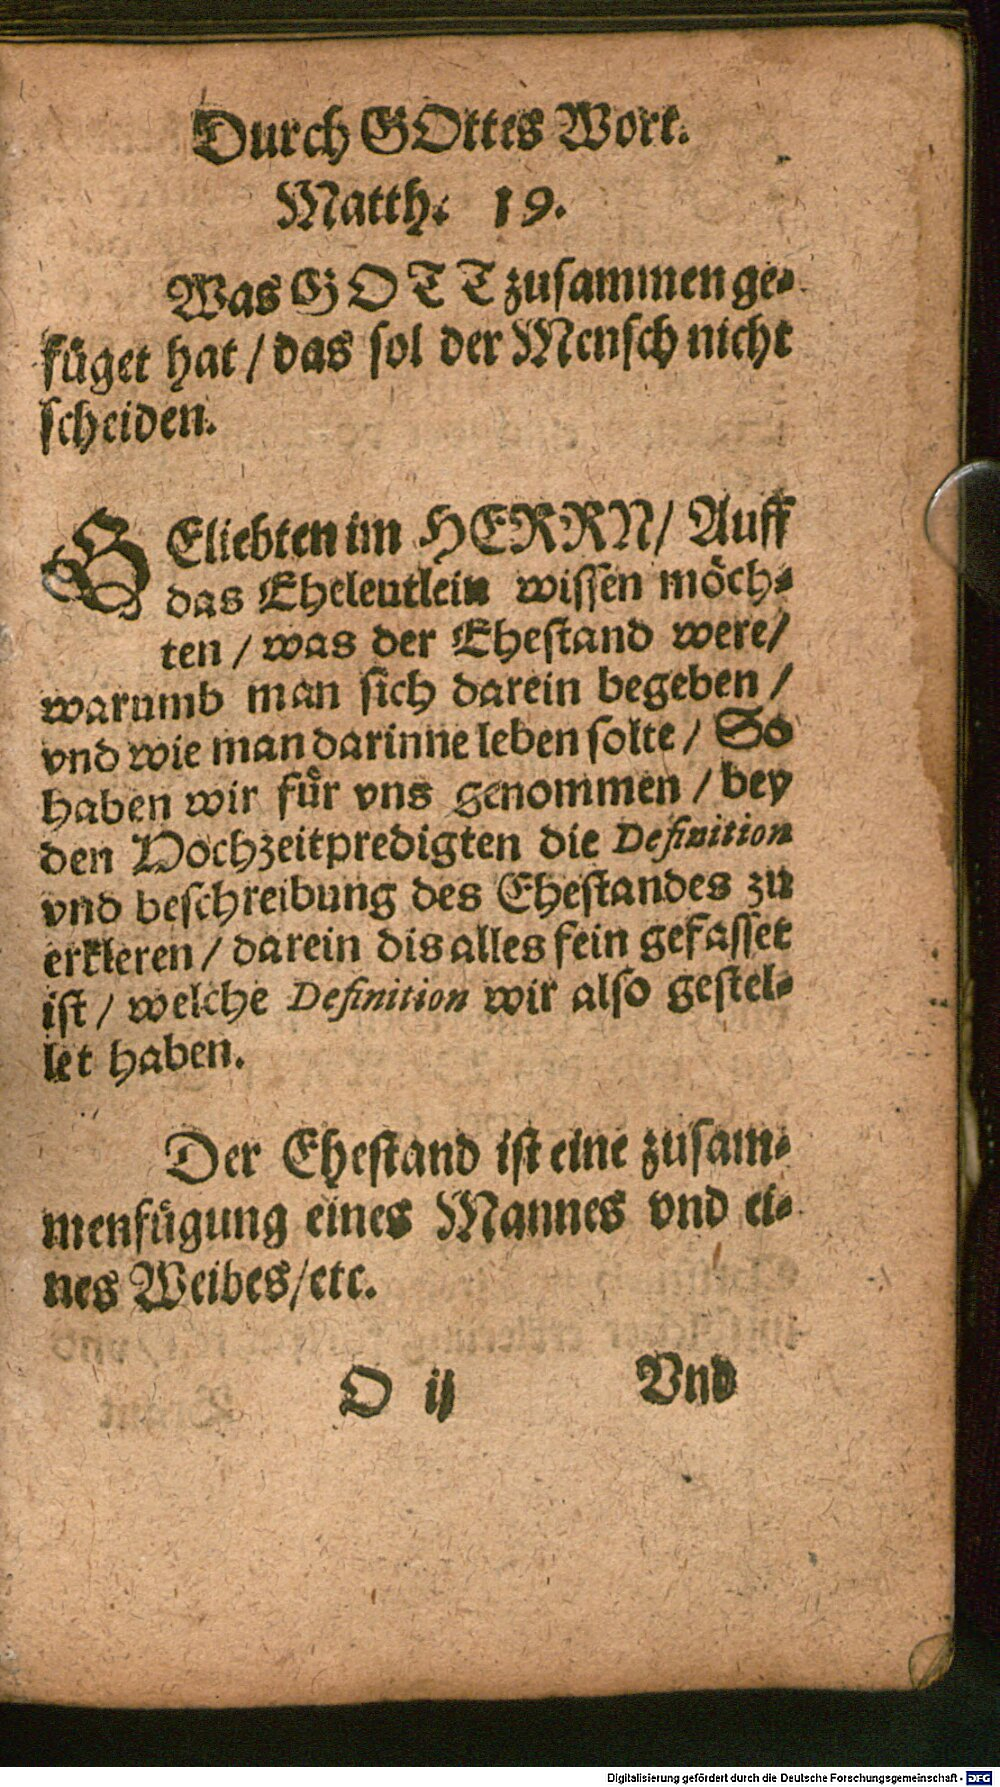 Durch GOttes Wort.
Matth. 19.
Was GOTT zusammen ge-
füget hat / das sol der Mensch nicht
scheiden.
GEliebten im HERRN / Auff
das Eheleutlein wissen möch-
ten / was der Ehestand were /
warumb man sich darein begeben /
vnd wie man darinne leben solte / So
haben wir für vns genommen / bey
den Hochzeitpredigten die Definition
vnd beschreibung des Ehestandes zu
erkleren / darein dis alles fein gefasset
ist / welche Definition wir also gestel-
let haben.
Der Ehestand ist eine zusam-
menfügung eines Mannes vnd ei-
nes Weibes / etc.
O ij Vnd
Digitalisierung gefördert durch die Deutsche Forschungsgemeinschaft - DFG